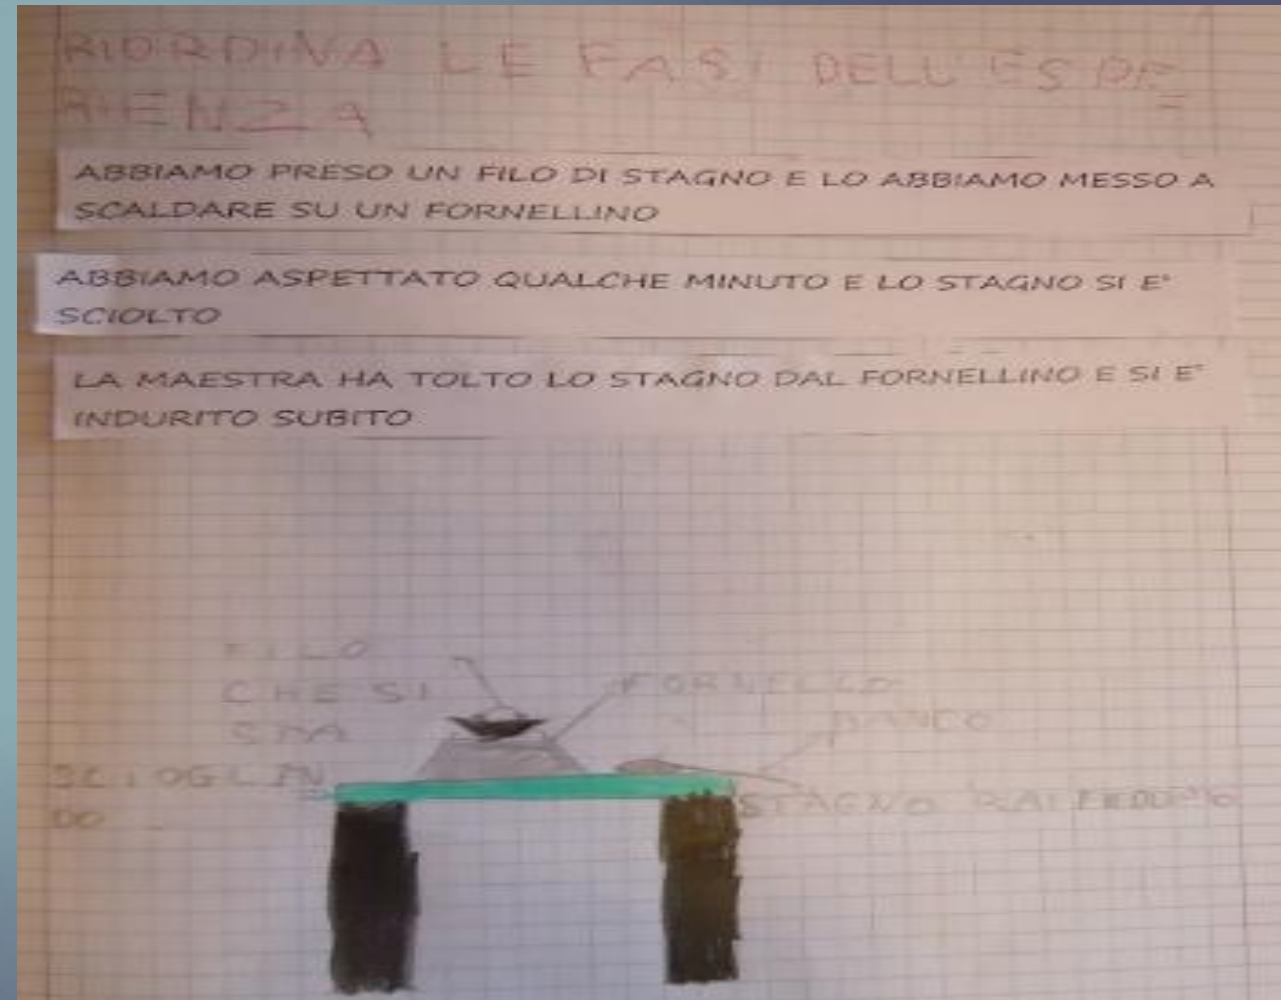 RIORDINA LE FASI DELL'ESPE=
RIENZA
ABBIAMO PRESO UN FILO DI STAGNO E LO ABBIAMO MESSO A
SCALDARE SU UN FORNELLINO
ABBIAMO ASPETTATO QUALCHE MINUTO E LO STAGNO SI E'
SCIOLTO
LA MAESTRA HA TOLTO LO STAGNO DAL FORNELLINO E SI E'
INDURITO SUBITO
FILO
CHE SI
STA
SCIOGLIEN
DO
FORNELLO
BANCO
STAGNO